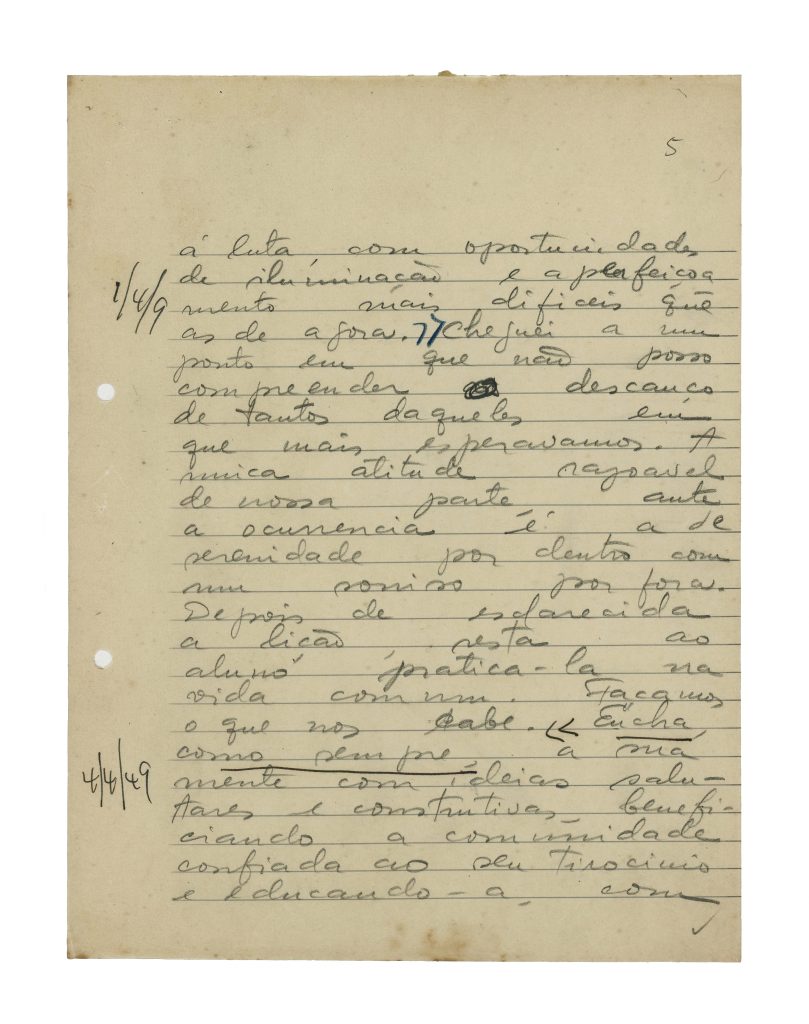 5
á luta com oportunidades
de iluminação e aperfeiçoa
1/4/9
mento mais dificeis que
as de agora. 77 Cheguei a um
ponto em que não posso
compreender descanço
de tantos daqueles em
que mais esperavamos. A
unica atitude razoavel
de nossa parte ante
a ocurrencia é a de
serenidade por dentro com
um sorriso por fora.
Depois de esclarecida
a lição, resta ao
aluno pratica-la na
vida commum. Façamos
o que nos cabe. << Encha,
como sempre, a sua
4/4/49
mente com ideias salu-
tares e construtivas, benefi-
ciando a comunidade
confiada ao seu tirocinio
e educando-a, com